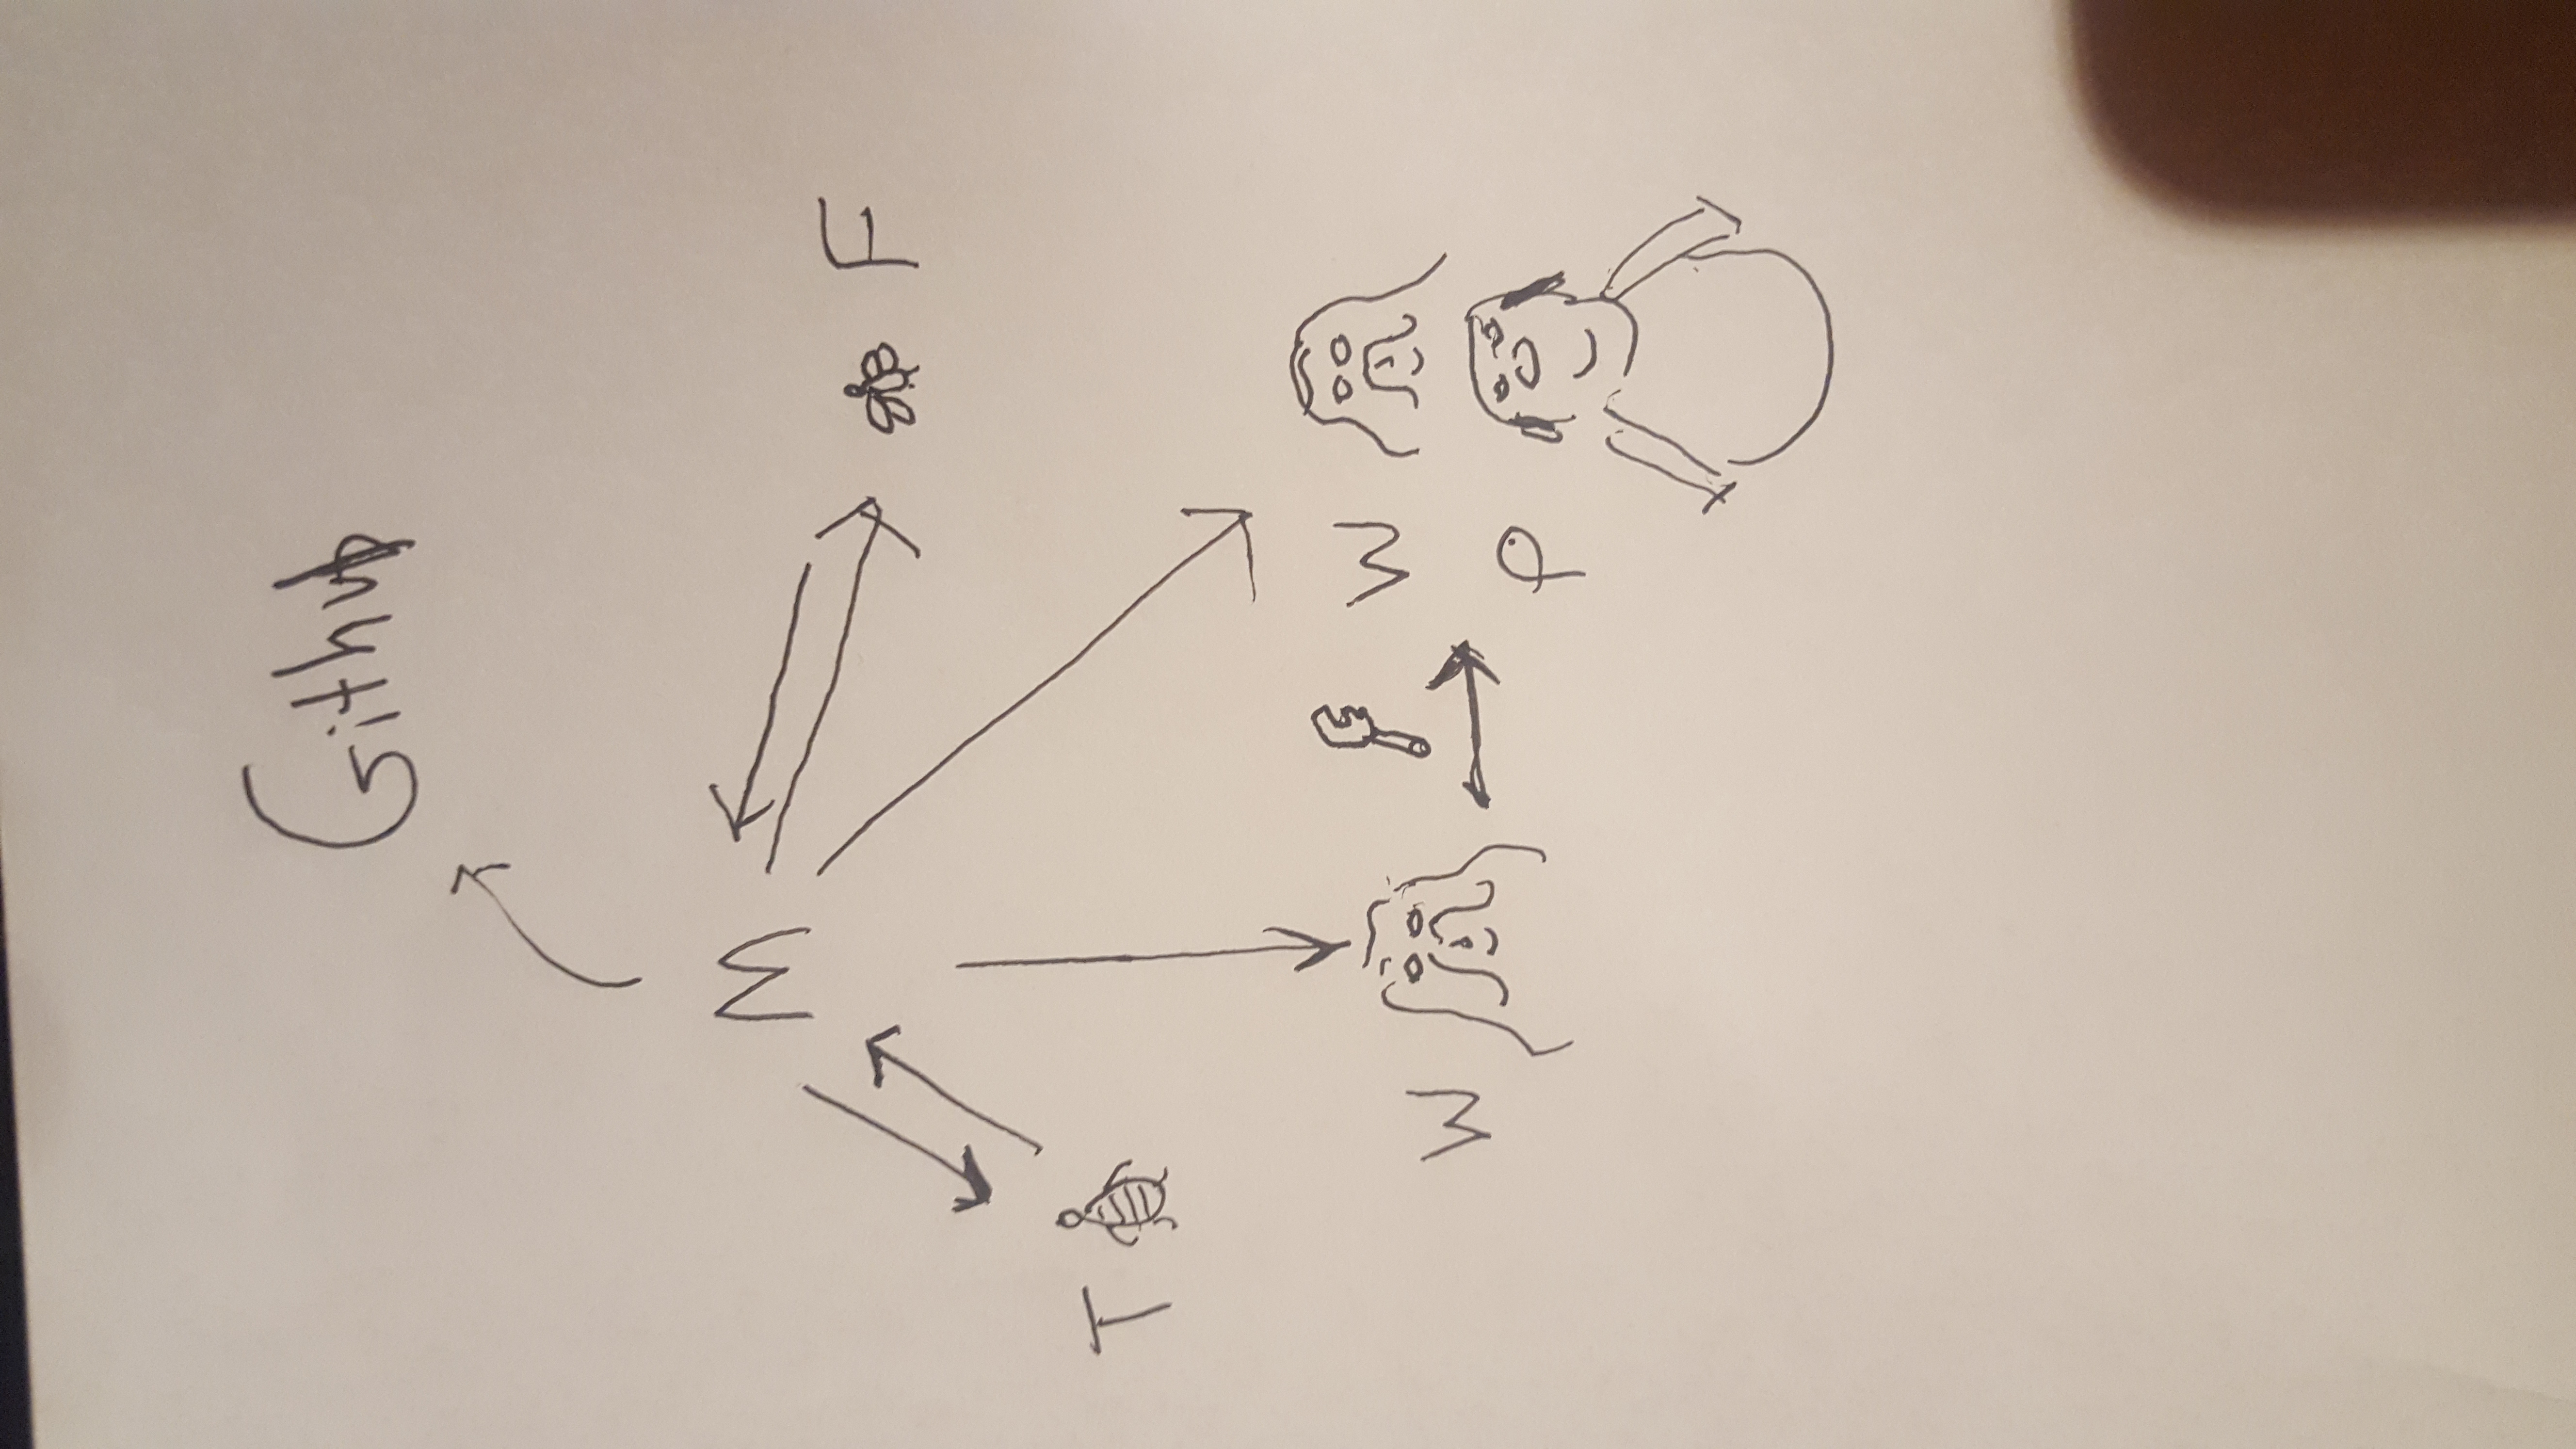 Github
M
F
T
W
W
P